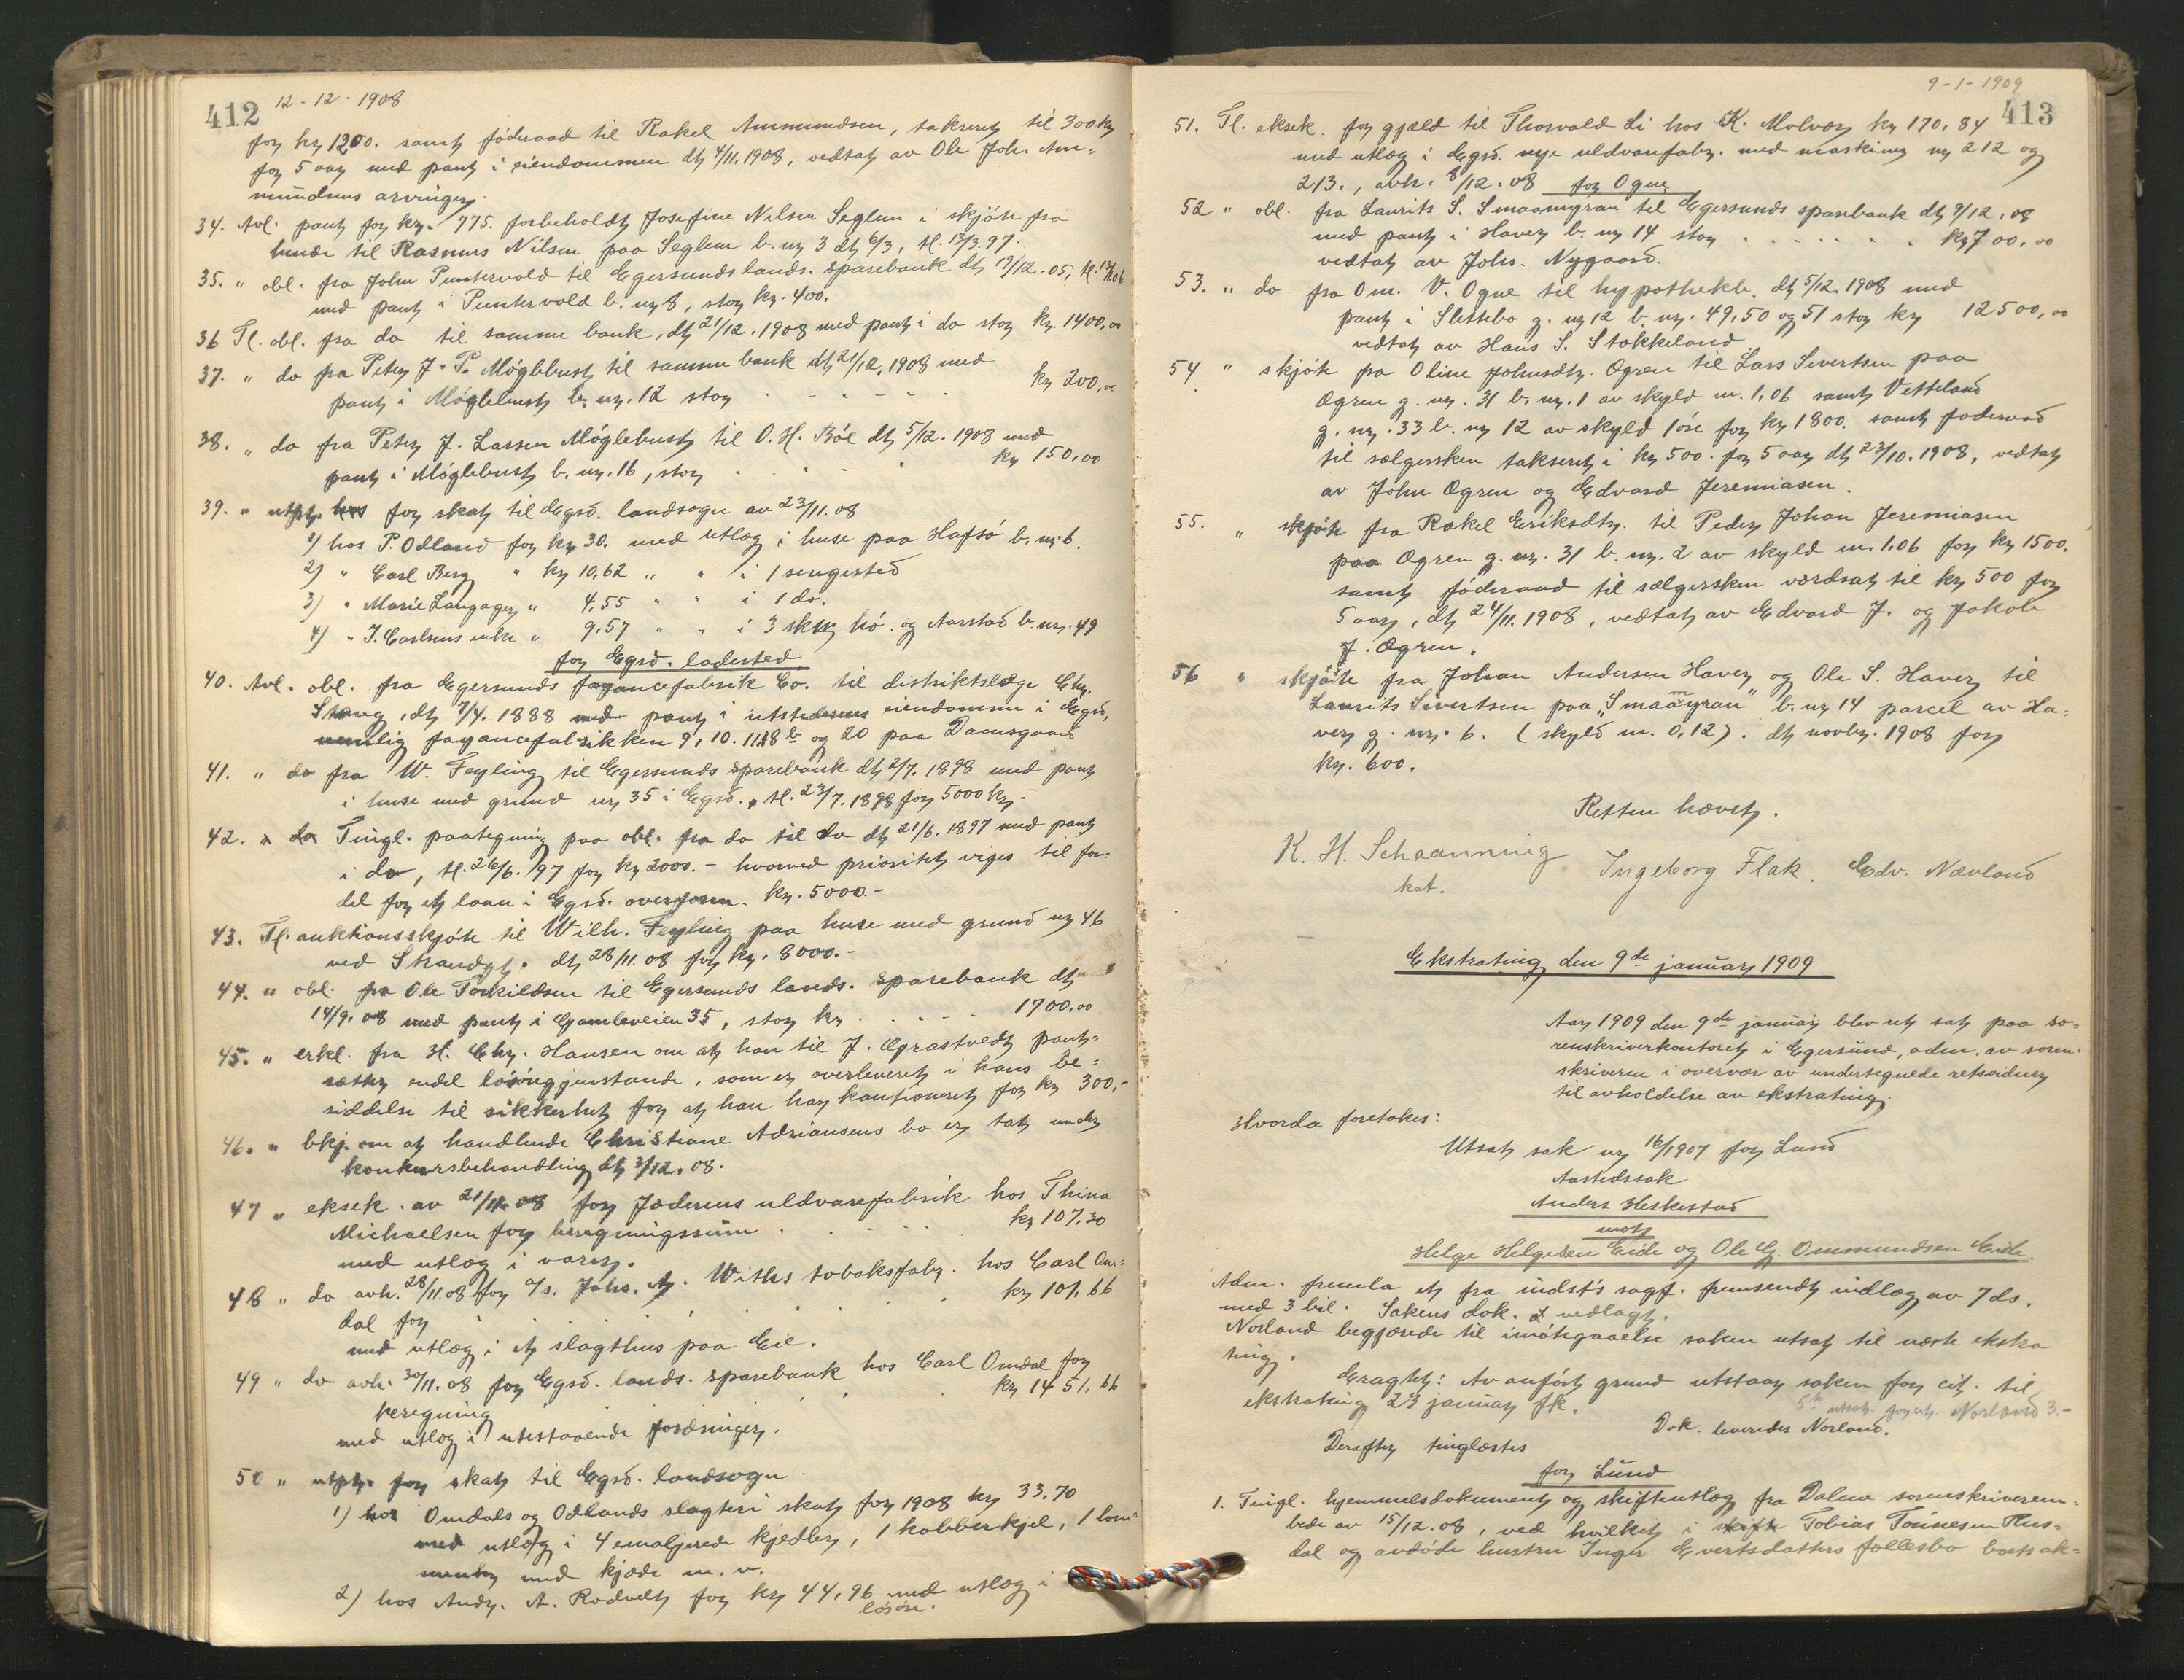 412 12-12-1908
for kr 1200. samt föderaad til Rakel Ammundsen, takseret til 300 kr
for 5 aar med pant i eiendommen dt 4/11.1908, vedtat av Ole Joh. Am-
mundsens arvinger.
34. Avl. pant for kr. 775. forbeholdt Josefine Nilsen Seglem i skjöte fra
hende til Rasmus Nilsen paa Seglem b. nr 3 dt 6/3, tl. 13/3.97.
35. " obl. fra John Puntervold til Egersunds lands. sparebank dt 19/12.05, tl. 13/1.06
med pant i Puntervold b. nr 8, stor kr. 400.
36 Tl. obl. fra do til samme bank, dt 21/12.1908 med pant i do stor kr. 1400,00
37. " do fra Peter J. P. Möglebust til samme bank dt 21/12.1908 med
pant i Möglebust b. nr. 12 stor . . . . . kr 200,00
38. " do fra Peter J. Lassen Möglebust til O. H. Böe dt 5/12.1908 med
pant i Möglebust b. nr. 16, stor . . . . kr 150,00
39. " utpt. for skat til Egsd. landsogn av 23/11.08
1) hos P. Odland for kr 30. med utlæg i huse paa Hafsö b. nr. 6.
2) " Carl Berg " kr 10,62 " " i 1 sengested
3) " Marie Langager " 4,55 " " i 1 do.
4) " J. Carlsens enke " 9,57 " " i 3 hö. og Aarstad b. nr. 49
for Egsd. ladested
40. Avl. obl. fra Egersunds fayancefabrik Co. til distriktslæge Chr.
Stang, dt 7/4.1888 med pant i utstederens eiendomme i Egsd,
nemlig fayancefabrikken 9, 10. 11. 18 b og 20 paa Damsgaard
41. " do fra W. Feyling til Egersunds sparebank dt 2/7.1898 med pant
i huse med grund nr 35 i Egsd., tl. 23/7.1898 for 5000 kr.-
42. " Tingl. paategning paa obl. fra do til do dt 21/6.1897 med pant
i do, tl. 26/6.97 for kr 2000.- hvorved prioritet viges til for-
del for et laan i Egsd. overform. kr. 5000.-
43. Tl. auktionsskjöte til Wilh. Feyling paa huse med grund nr 46
ved Strandgt. dt 28/11.08 for kr. 8000.-
44. " obl. fra Ole Torkildsen til Egersunds lands. sparebank dt
14/9.08 med pant i Gamleveien 35, stor kr . . . . . 1700,00
45. " erkl. fra H. Chr. Hansen om at han til J. Ograstvedt pant-
sætter endel lösöregjenstande, som er overleveret i hans be-
siddelse til sikkerhet for at han har kautioneret for kr 300,-
46. " bkj. om at handlende Christiane Adriansens bo er tat under
konkursbehandling dt 3/12.08.
47 " eksek. av 21/11.08 for Jæderens uldvarefabrik hos Thina
Michaelsen for beregningssum . . . . . kr 107,30
med utlæg i varer.
48 " do avh. 28/11.08 for a/s. Johs. H. Withs tobaksfabr. hos Carl Om-
dal for . . . . . kr 101,66
med utlæg i et slagthus paa Eie.
49 " do avh. 30/11.08 for Egsd. lands. sparebank hos Carl Omdal for
beregning . . . . . kr 1451,66
med utlæg i utestaaende fordringer.
50 " utpt. for skat til Egsd. landsogn
1) hos Omdals og Odlands slagteri skat for 1908 kr 33,70
med utlæg i 4 emaljerede kjedler, 1 kobberkjel, 1 lom-
meuhr med kjæde m. v.
2) hos Andr. A. Rodvelt for kr 44,96 med utlæg i
lösöre.
9-1-1909
413
51. Tl. eksek. for gjæld til Thorvald Li hos K. Molvær kr 170,84
med utlæg i Egsd. nye uldvarefabr. med maskiner nr 212 og
213., avh. 8/12.08 for Ogne
52 " obl. fra Laurits S. Smaamyran til Egersunds sparebank dt 9/12.08
med pant i Haver b. nr 14 stor . . . . . . kr 700,00
vedtat av Johs. Nygaard.
53. " do fra Om. V. Ogne til hypothekb. dt 5/12.1908 med
pant i Slettebo g. nr 12 b. nr. 49, 50 og 51 stor kr 12500,00
vedtat av Hans S. Stokkeland
54 " skjöte fra Oline Johnsdtr. Ogren til Lars Sivertsen paa
Ogren g. nr. 31 b. nr. 1 av skyld m. 1,06 samt Vetteland
g. nr. 33 b. nr 12 av skyld 1 öre for kr 1800. samt föderaad
til sælgersken takseret i kr 500. for 5 aar dt 23/10.1908, vedtat
av John Ogren og Edvard Jeremiasen.
55. " skjöte fra Rakel Eriksdtr. til Peder Johan Jeremiasen
paa Ogren g. nr. 31 b. nr. 2 av skyld m. 1.06 for kr 1500.
samt föderaad til sælgersken værdsat til kr 500 for
5 aar, dt 24/11.1908, vedtat av Edvard J. og Jakob
J. Ogren.
56 " skjöte fra Johan Andersen Haver og Ole S. Haver til
Laurits Sivertsen paa "Smaamyran" b. nr 14 parcel av Ha-
ver g. nr. 6. (skyld m. 0,12). dt novbr. 1908 for
kr. 600.
Retten hævet.
K. H. Schaanning Ingeborg Flak. Edv. Nævland
kst.
Ekstrating den 9de januar 1909
Aar 1909 den 9de januar blev ret sat paa so-
renskriverkontoret i Egersund, adm. av soren-
skriveren i overvær av undertegnede retsvidner
til avholdelse av ekstrating.
Hvorda foretokes:
Utsat sak nr 16/1907 for Lund
Aastedssak
Anders Heskestad
mot
Helge Helgesen Eide og Ole G. Ommundsen Eide.
Adm. fremla et fra indst's sagf. fremsendt indlæg av 7 ds.
med 3 bil. Sakens dok. vedlagt.
Norland begjærede til imötegaaelse saken utsat til næste ekstra
ting.
Eragtet: Av anfört grund utstaar saken for cit. til
ekstrating 23 januar fk.
5te utsæt. Norland 3.-
Dok. leveredes Norland.
Derefter tinglæstes
for Lund
1. Tingl. hjemmelsdokument og skifteutlæg fra Dalene sorenskriverem-
bede av 15/12.08, ved hvilket i skifte Tobias Tönnesen Hus-
dal og avdöde hustru Inger Evertsdatters fællesbo boets ak-